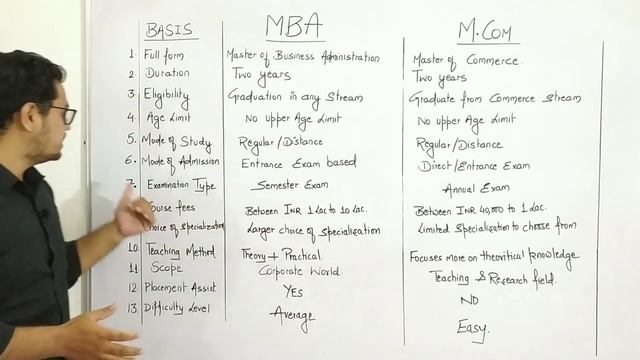 BASIS MBA M.COM
1. Full form Master of Business Administration Master of Commerce.
2. Duration Two years Two years
3. Eligibility Graduation in any Stream Graduate from Commerce Stream
4. Age Limit No upper Age Limit No upper Age Limit
5. Mode of Study Regular/Distance Regular/Distance
6. Mode of Admission Entrance Exam based Direct/Entrance Exam
7. Examination Type Semester Exam Annual Exam
Course fees Between INR 1 Lac to 10 Lac. Between INR 40,000 to 1 Lac.
Choice of Specialization Larger choice of specialisation Limited Specialisation to choose from
10. Teaching Method Theory + Practical Focuses more on theoritical knowledge
11. Scope Corporate World Teaching & Research field.
12. Placement Assist YES NO
13. Difficulty Level Average Easy.